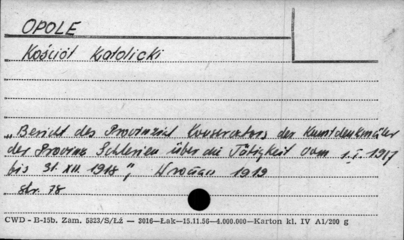 OPOLE
Kościół Katolicki
„Bericht des Provinzial Konservators der Kunstdenkmäler
der Provinz Schlesien über die Tätigkeit vom 1.I.1917
bis 31.XII.1918", Wrocław 1919
str. 78
CWD - B-15b. Zam. 5323/S/Łź — 3016—Łak—15.11.56—4.000.000—Karton kl. IV A1/200 g